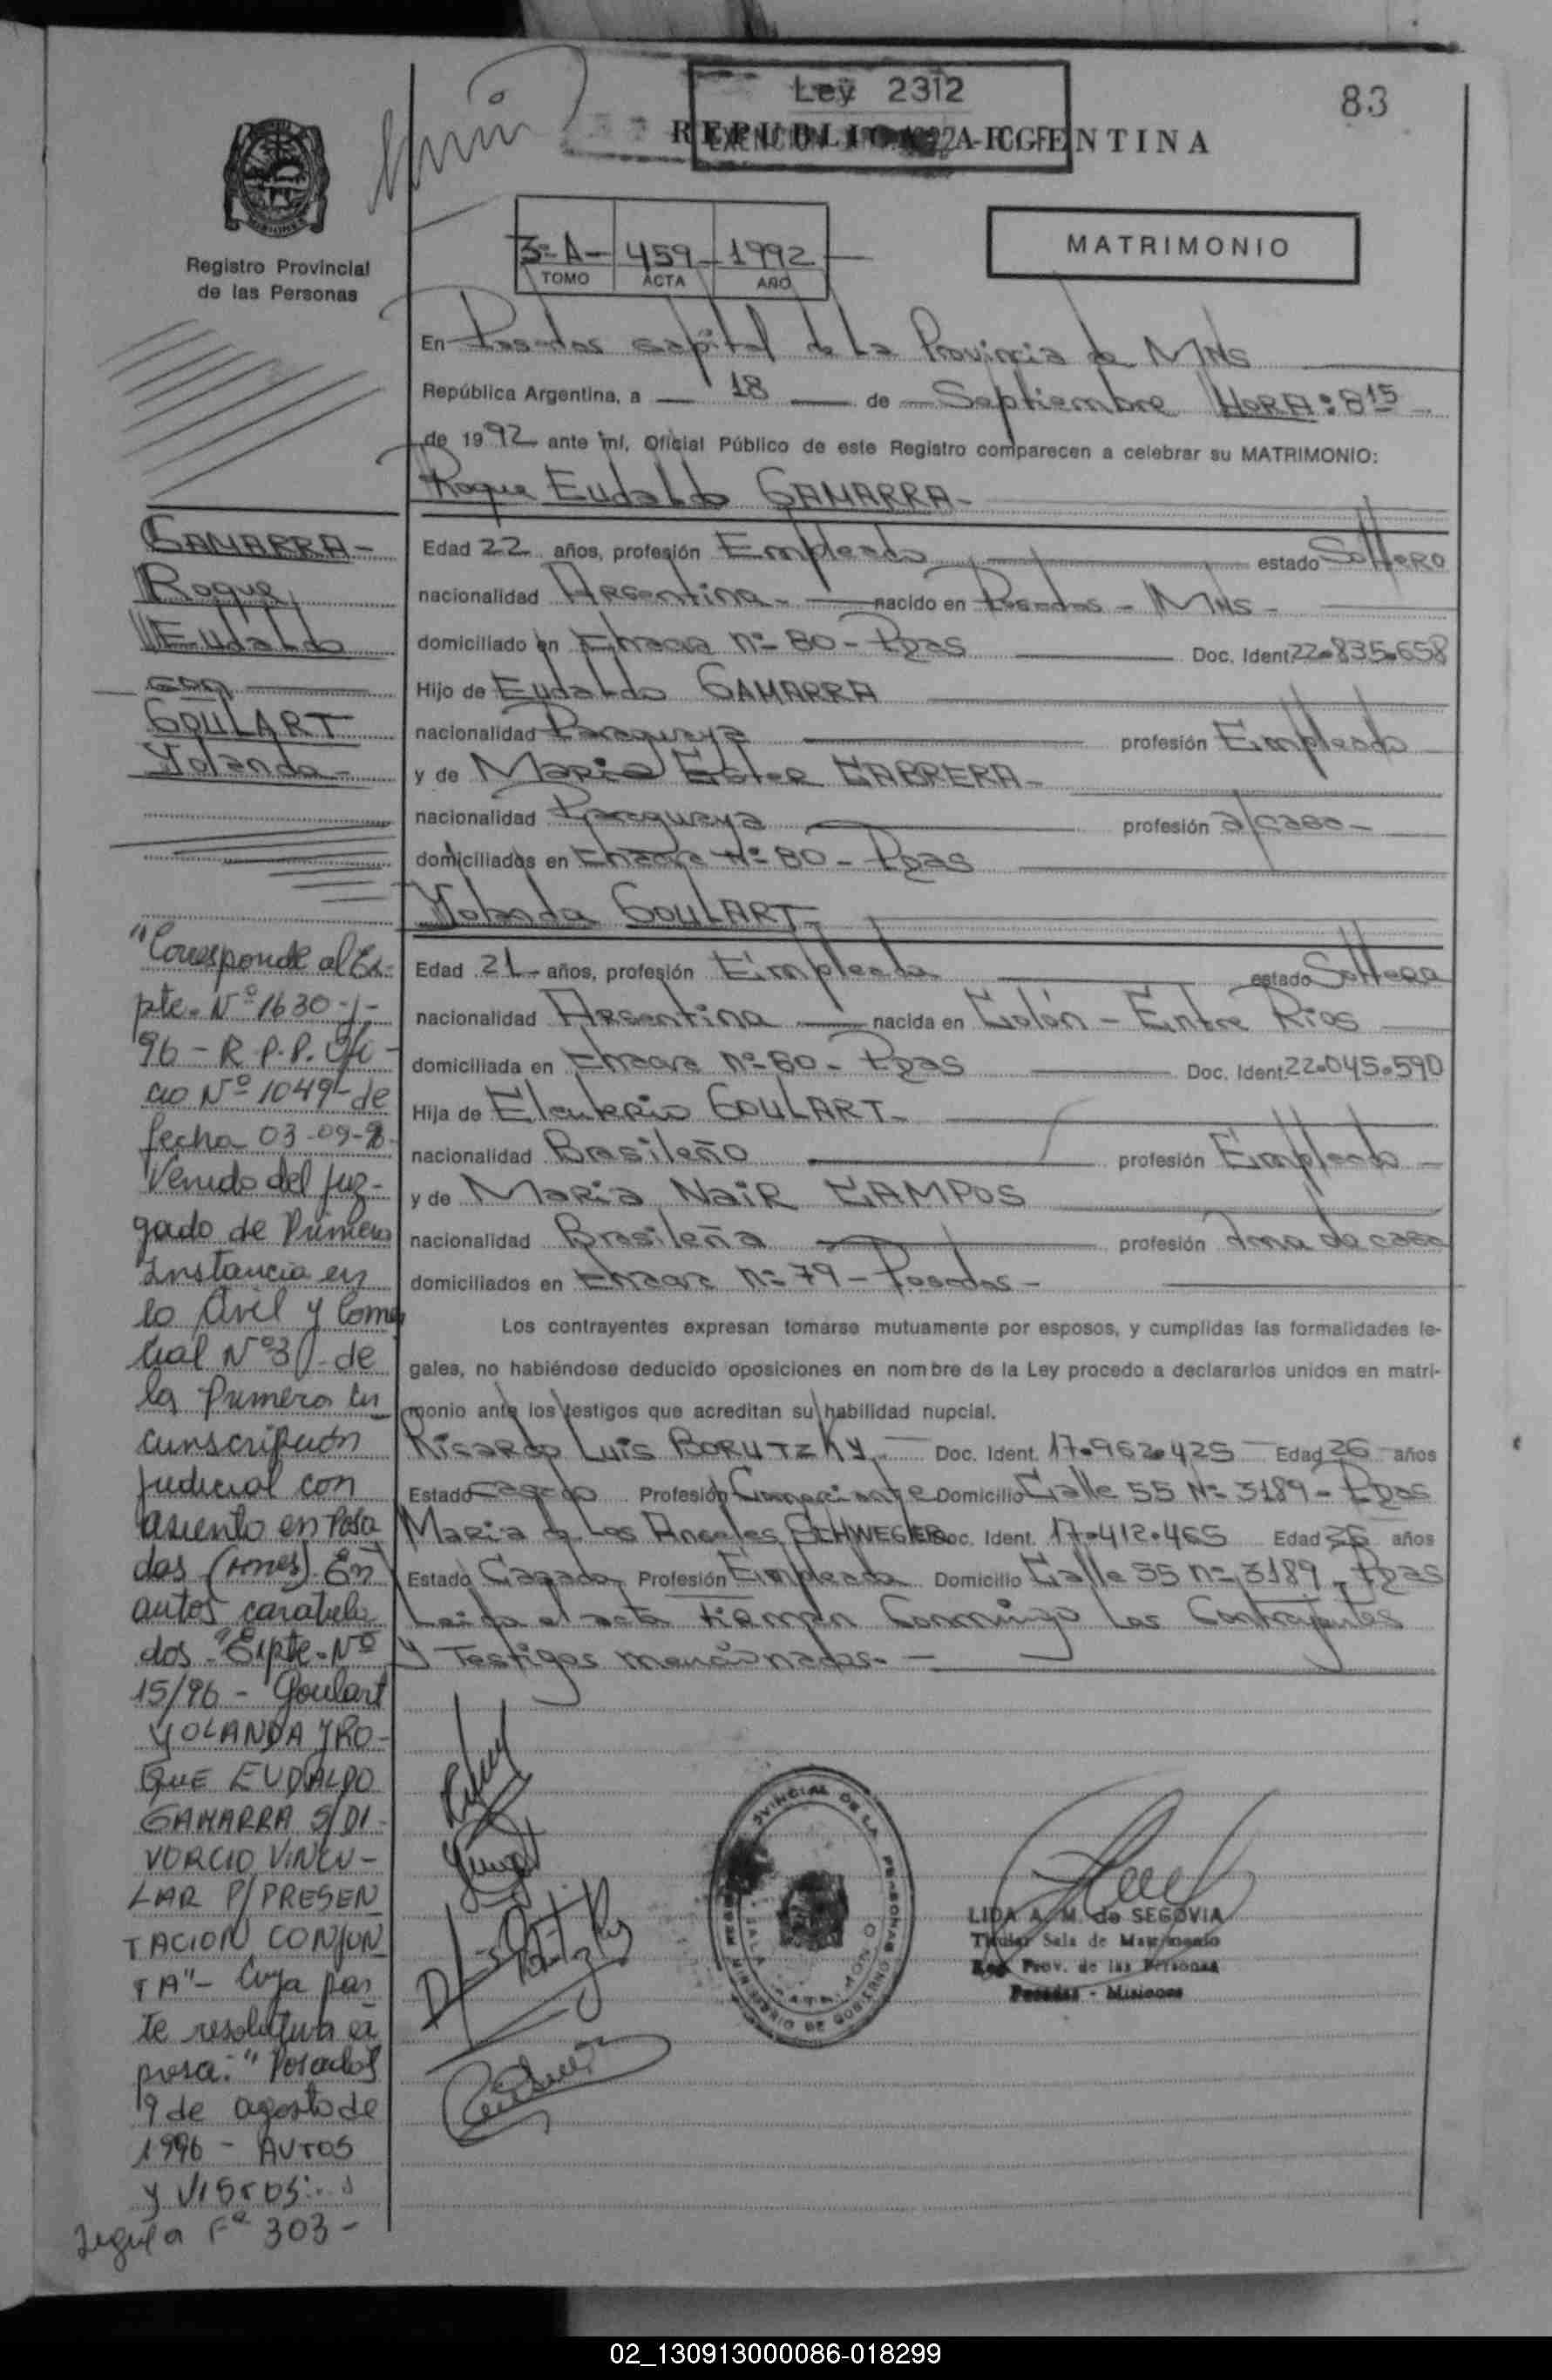 Ley 2312
83
REPUBLICA ARGENTINA
Registro Provincial
de las Personas
3º A - 459 - 1992
TOMO ACTA AÑO
MATRIMONIO
En Posadas capital de la Provincia de Mnes
República Argentina, a 18 de Septiembre HORA: 8 15
de 1992 ante mí, Oficial Público de este Registro comparecen a celebrar su MATRIMONIO:
Roque Eudaldo GAMARRA-
Edad 22 años, profesión Empleado estado Soltero
nacionalidad Argentina - nacido en Posadas - Mnes -
domiciliado en Chacra nº 80 - Pdas Doc. Ident. 22.835.658
Hijo de Eudaldo GAMARRA
nacionalidad Paraguaya profesión Empleado
y de Maria Ester CABRERA-
nacionalidad Paraguaya profesión a/casa-
domiciliados en Chacra Nº 80 - Pdas
Yolanda GOULART-
Edad 21 - años, profesión Empleada estado Soltera
nacionalidad Argentina nacida en Colón - Entre Rios
domiciliada en Chacra nº 80 - Pdas Doc. Ident. 22.045.590
Hija de Eleuterio GOULART-
nacionalidad Brasileño profesión Empleado -
y de Maria Nair CAMPOS
nacionalidad Brasileña profesión Ama de casa
domiciliados en Chacra nº 79 - Posadas -
Los contrayentes expresan tomarse mutuamente por esposos, y cumplidas las formalidades le-
gales, no habiéndose deducido oposiciones en nombre de la Ley procedo a declararlos unidos en matri-
monio ante los testigos que acreditan su habilidad nupcial.
Ricardo Luis BORUTZKY - Doc. Ident. 17.962.425 - Edad 26 años
Estado Casado Profesión Comerciante Domicilio Calle 55 Nº 3189 - Pdas
Maria de Los Angeles SCHWEGER Doc. Ident. 17.412.465 Edad 26 años
Estado Casada Profesión Empleada Domicilio Calle 55 nº 3189 - Pdas
Leida el acta firman Conmigo Los Contrayentes
y Testigos mencionados. -
LIDA A. M. de SEGOVIA
Titular Sala de Matrimonio
Reg. Prov. de las Personas
Posadas - Misiones
GAMARRA-
Roque
Eudaldo
con
GOULART
Yolanda-
"Corresponde al Ex-
pte. Nº 1630-J-
96 - R.P.P. Ofi-
cio Nº 1049 - de
fecha 03-09-96-
Venido del Juz-
gado de Primera
Instancia en
lo Civil y Comer
cial Nº 3 - de
la Primera Cir
cunscripción
Judicial con
asiento en Posa
das (Mnes). En
autos caratula
dos. "Expte. Nº
15/96 - Goulart
YOLANDA Y RO-
QUE EUDALDO
GAMARRA S/DI-
VORCIO VINCU-
LAR P/PRESEN
TACION CONJUN
TA"- Cuya par
te resolutiva ex
presa: "Posadas
9 de agosto de
1996 - AUTOS
y VISTOS:..
Sigue a Fº 303 -
02_130913000086-018299